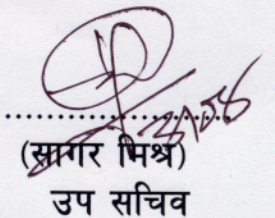 (सागर मिश्र)
उप सचिव